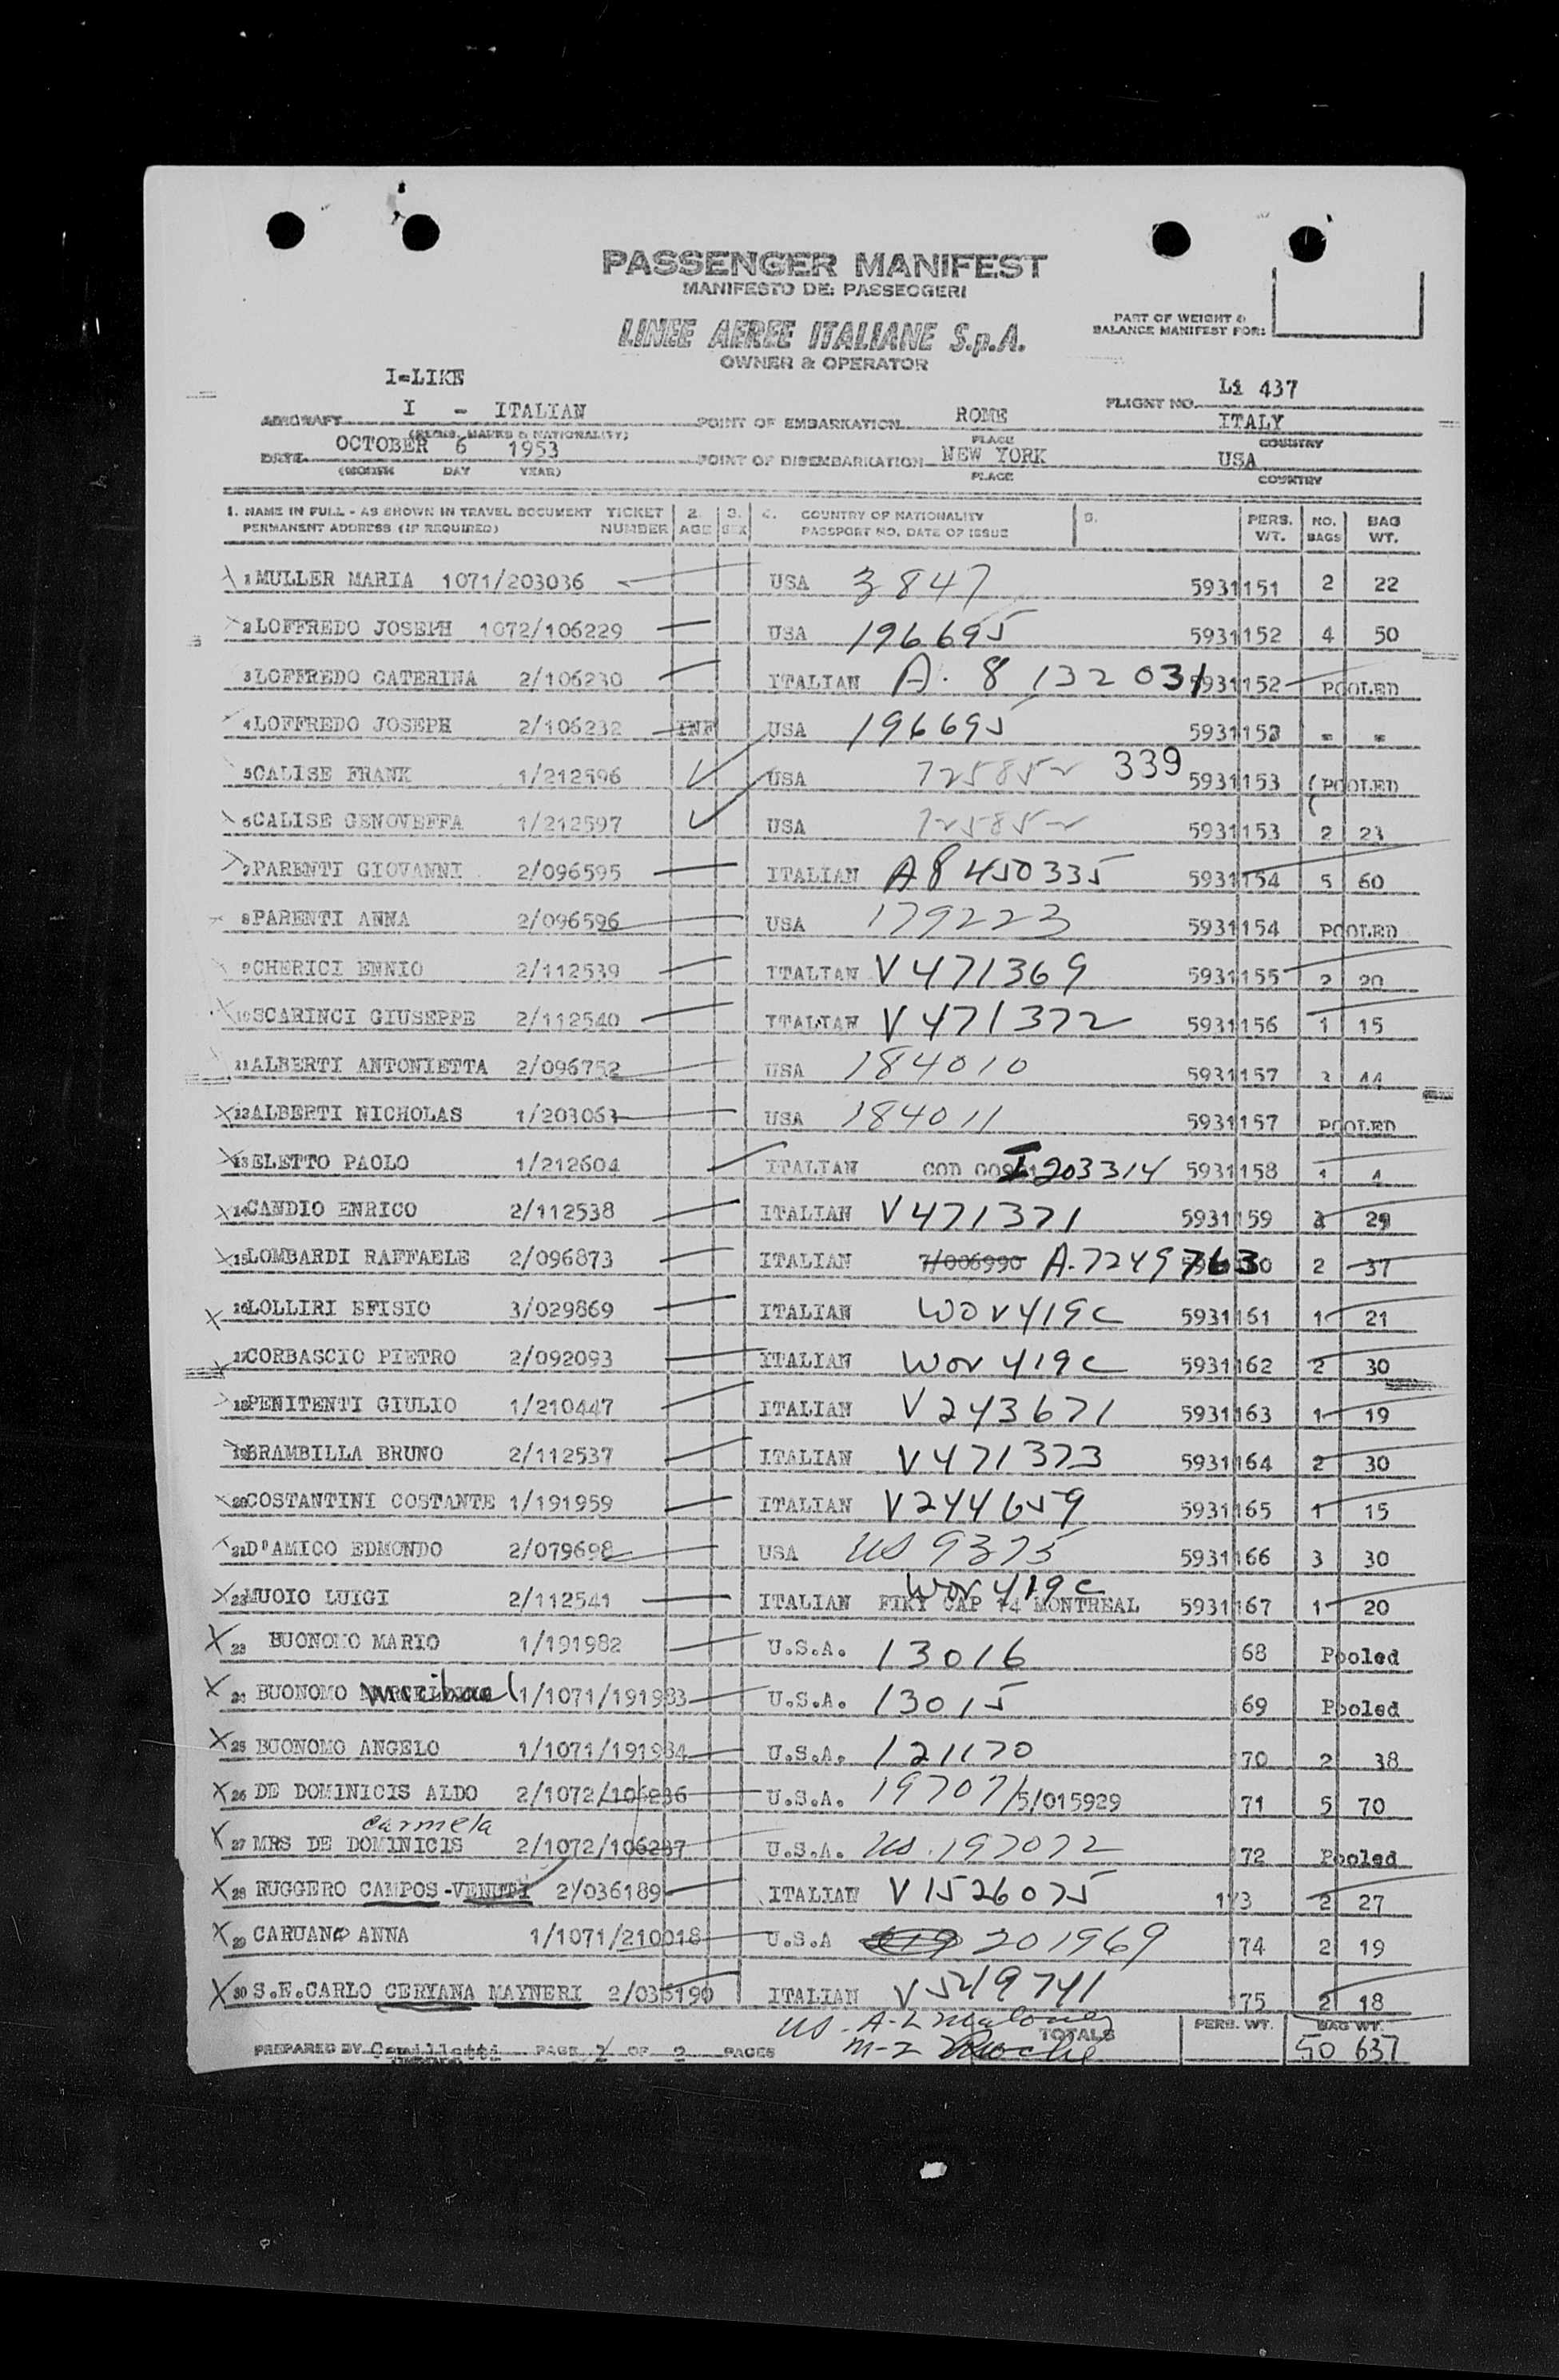 PASSENGER MANIFEST
MANIFESTO DEI PASSEGGERI
LINEE AEREE ITALIANE S.p.A.
OWNER & OPERATOR
PART OF WEIGHT &
BALANCE MANIFEST FOR:
I-LIKE
AIRCRAFT I - ITALIAN
(REGIS. MARKS & NATIONALITY)
POINT OF EMBARKATION ROME
PLACE
FLIGHT NO. Li 437
ITALY
COUNTRY
DATE OCTOBER 6 1953
(MONTH DAY YEAR)
POINT OF DISEMBARKATION NEW YORK
PLACE
USA
COUNTRY
1. NAME IN FULL - AS SHOWN IN TRAVEL DOCUMENT TICKET 2. 3. 4. COUNTRY OF NATIONALITY 5. PERS. NO. BAG
PERMANENT ADDRESS (IF REQUIRED) NUMBER AGE SEX PASSPORT NO. DATE OF ISSUE WT. BAGS WT.
1 MULLER MARIA 1071/203036 USA 3847 5931151 2 22
2 LOFFREDO JOSEPH 1072/106229 USA 196695 5931152 4 50
3 LOFFREDO CATERINA 2/106230 ITALIAN A. 8 132 031 5931152 POOLED
4 LOFFREDO JOSEPH 2/106232 INF USA 196695 5931152 - -
5 CALISE FRANK 1/212596 USA 725852 339 5931153 (POOLED
6 CALISE GENOVEFFA 1/212597 USA 725852 5931153 ( 2 23
7 PARENTI GIOVANNI 2/096595 ITALIAN A8450335 5931154 5 60
8 PARENTI ANNA 2/096596 USA 179223 5931154 POOLED
9 CHERICI ENNIO 2/112539 ITALIAN V471369 5931155 2 20
10 SCARINCI GIUSEPPE 2/112540 ITALIAN V471372 5931156 1 15
11 ALBERTI ANTONIETTA 2/096752 USA 184010 5931157 3 44
12 ALBERTI NICHOLAS 1/203063 USA 184011 5931157 POOLED
13 ELETTO PAOLO 1/212604 ITALIAN COD I203314 5931158 1 4
14 CANDIO ENRICO 2/112538 ITALIAN V471371 5931159 3 29
15 LOMBARDI RAFFAELE 2/096873 ITALIAN 7/006990 A.7249763 0 2 37
16 LOLLIRI EFISIO 3/029869 ITALIAN WOV419C 5931161 1 21
17 CORBASCIO PIETRO 2/092093 ITALIAN WOV 419C 5931162 2 30
18 PENITENTI GIULIO 1/210447 ITALIAN V243671 5931163 1 19
19 BRAMBILLA BRUNO 2/112537 ITALIAN V471373 5931164 2 30
20 COSTANTINI COSTANTE 1/191959 ITALIAN V244659 5931165 1 15
21 D'AMICO EDMONDO 2/079698 USA US 9375 5931166 3 30
WOV 419C
22 MUOIO LUIGI 2/112541 ITALIAN CAP 74 MONTREAL 5931167 1 20
23 BUONOMO MARIO 1/191982 U.S.A. 13016 68 Pooled
24 BUONOMO michael 1/1071/191983 U.S.A. 13015 69 Pooled
25 BUONOMO ANGELO 1/1071/191984 U.S.A. 121170 70 2 38
26 DE DOMINICIS ALDO 2/1072/106236 U.S.A. 19707 /5/015929 71 5 70
carmela
27 MRS DE DOMINICIS 2/1072/106237 U.S.A. US.197072 72 Pooled
28 RUGGERO CAMPOS-VENUTI 2/036189 ITALIAN V1526075 173 2 27
29 CARUANA ANNA 1/1071/210018 U.S.A 201969 74 2 19
30 S.E.CARLO CERYANA MAYNERI 2/036190 ITALIAN V549741 175 2 18
US-A-L
M-2
TOTALS PERS. WT. BAG WT.
50 637
PREPARED BY Camilletti PAGE 1 OF 2 PAGES